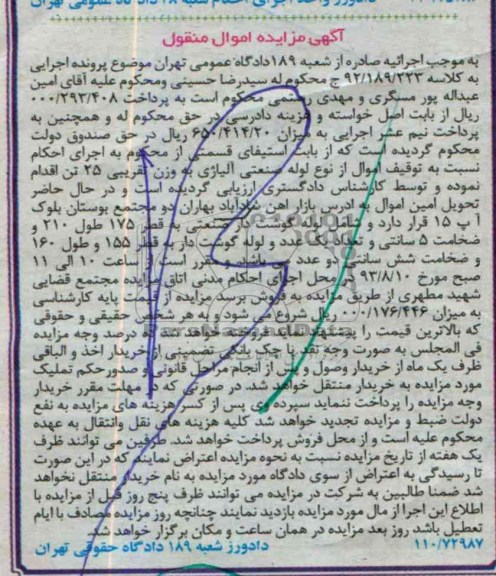 آگهی مزایده اموال منقول
به موجب اجرائیه صادره از شعبه ۱۸۹ دادگاه عمومی تهران موضوع پرونده اجرایی
به کلاسه ۹۲/۱۸۹/۲۲۳ ج محکوم له سیدرضا حسینی ومحکوم علیه آقای امین
عبداله پور مسگری و مهدی رستمی محکوم است به پرداخت ۰۰۰/۲۹۳/۴۰۸
ریال از بابت اصل خواسته و هزینه دادرسی در حق محکوم له و همچنین به
پرداخت نیم عشر اجرایی به میزان ۶۵۰/۴۱۴/۲۰ ریال در حق صندوق دولت
محکوم گردیده است که از بابت استیفای قسمتی از محکوم به اجرای احکام
نسبت به توقیف اموال از نوع لوله صنعتی آلیاژی به وزن تقریبی ۲۵ تن اقدام
نموده و توسط کارشناس دادگستری ارزیابی گردیده است و در حال حاضر
تحویل امین اموال به ادرس بازار اهن شادآباد بهاران دو مجتمع بوستان بلوک
آ پ ۱۵ قرار دارد و شامل لوله گوشت دار صنعتی به قطر ۱۷۵ طول ۲۱۰ و
ضخامت ۵ سانتی و تعداد یک عدد و لوله گوشت دار به قطر ۱۵۵ و طول ۱۶۰
و ضخامت شش سانتی دو عدد می باشد و مقرر است از ساعت ۱۰ الی ۱۱
صبح مورخ ۹۳/۸/۱۰ در محل اجرای احکام مدنی اتاق مزایده مجتمع قضایی
شهید مطهری از طریق مزایده به فروش برسد مزایده از قیمت پایه کارشناسی
به میزان ۰۰۰/۱۷۶/۴۴۶ ریال شروع می شود و به هر شخص حقیقی و حقوقی
که بالاترین قیمت را پیشنهاد نماید فروخته خواهد شد. درصد وجه مزایده
فی المجلس به صورت وجه نقد یا چک بانکی تضمینی از خریدار اخذ و الباقی
ظرف یک ماه از خریدار وصول و پس از انجام مراحل قانونی و صدورحکم تملیک
مورد مزایده به خریدار منتقل خواهد شد. در صورتی که در مهلت مقرر خریدار
وجه مزایده را پرداخت ننماید سپرده وی پس از کسر هزینه های مزایده به نفع
دولت ضبط و مزایده تجدید خواهد شد کلیه هزینه های نقل وانتقال به عهده
محکوم علیه است و از محل فروش پرداخت خواهد شد. طرفین می توانند ظرف
یک هفته از تاریخ مزایده نسبت به نحوه مزایده اعتراض نمایند که در این صورت
تا رسیدگی به اعتراض از سوی دادگاه مورد مزایده به نام خریدار منتقل نخواهد
شد ضمنا طالبین به شرکت در مزایده می توانند ظرف پنج روز قبل از مزایده با
اطلاع این اجرا از مال مورد مزایده بازدید نمایند چنانچه روز مزایده مصادف با ایام
تعطیل باشد روز بعد مزایده در همان ساعت و مکان برگزار خواهد شد.
۱۱۰/۷۲۹۸۷ دادورز شعبه ۱۸۹ دادگاه حقوقی تهران